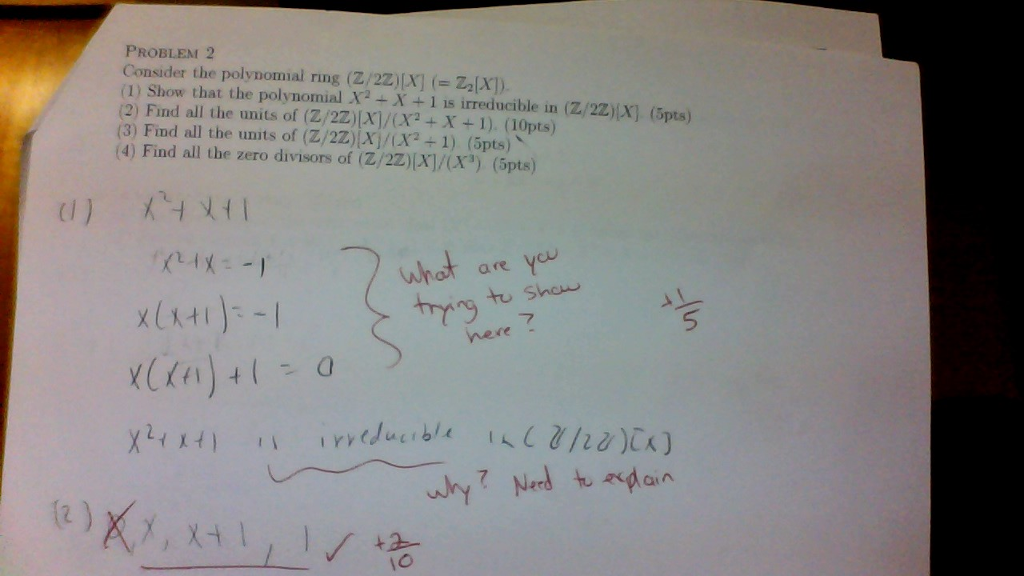 PROBLEM 2
Consider the polynomial ring (ℤ/2ℤ)[X] (= ℤ₂[X]).
(1) Show that the polynomial X² + X + 1 is irreducible in (ℤ/2ℤ)[X]. (5pts)
(2) Find all the units of (ℤ/2ℤ)[X]/(X² + X + 1). (10pts)
(3) Find all the units of (ℤ/2ℤ)[X]/(X² + 1). (5pts)
(4) Find all the zero divisors of (ℤ/2ℤ)[X]/(X³). (5pts)
(1) x²+x+1
x²+x = -1
x(x+1) = -1
x(x+1)+1 = 0
What are you
trying to show
here?
+1/5
x²+x+1 is irreducible in (ℤ/2ℤ)[x]
why? Need to explain
(2) x, x+1, 1 ✓ +2/10